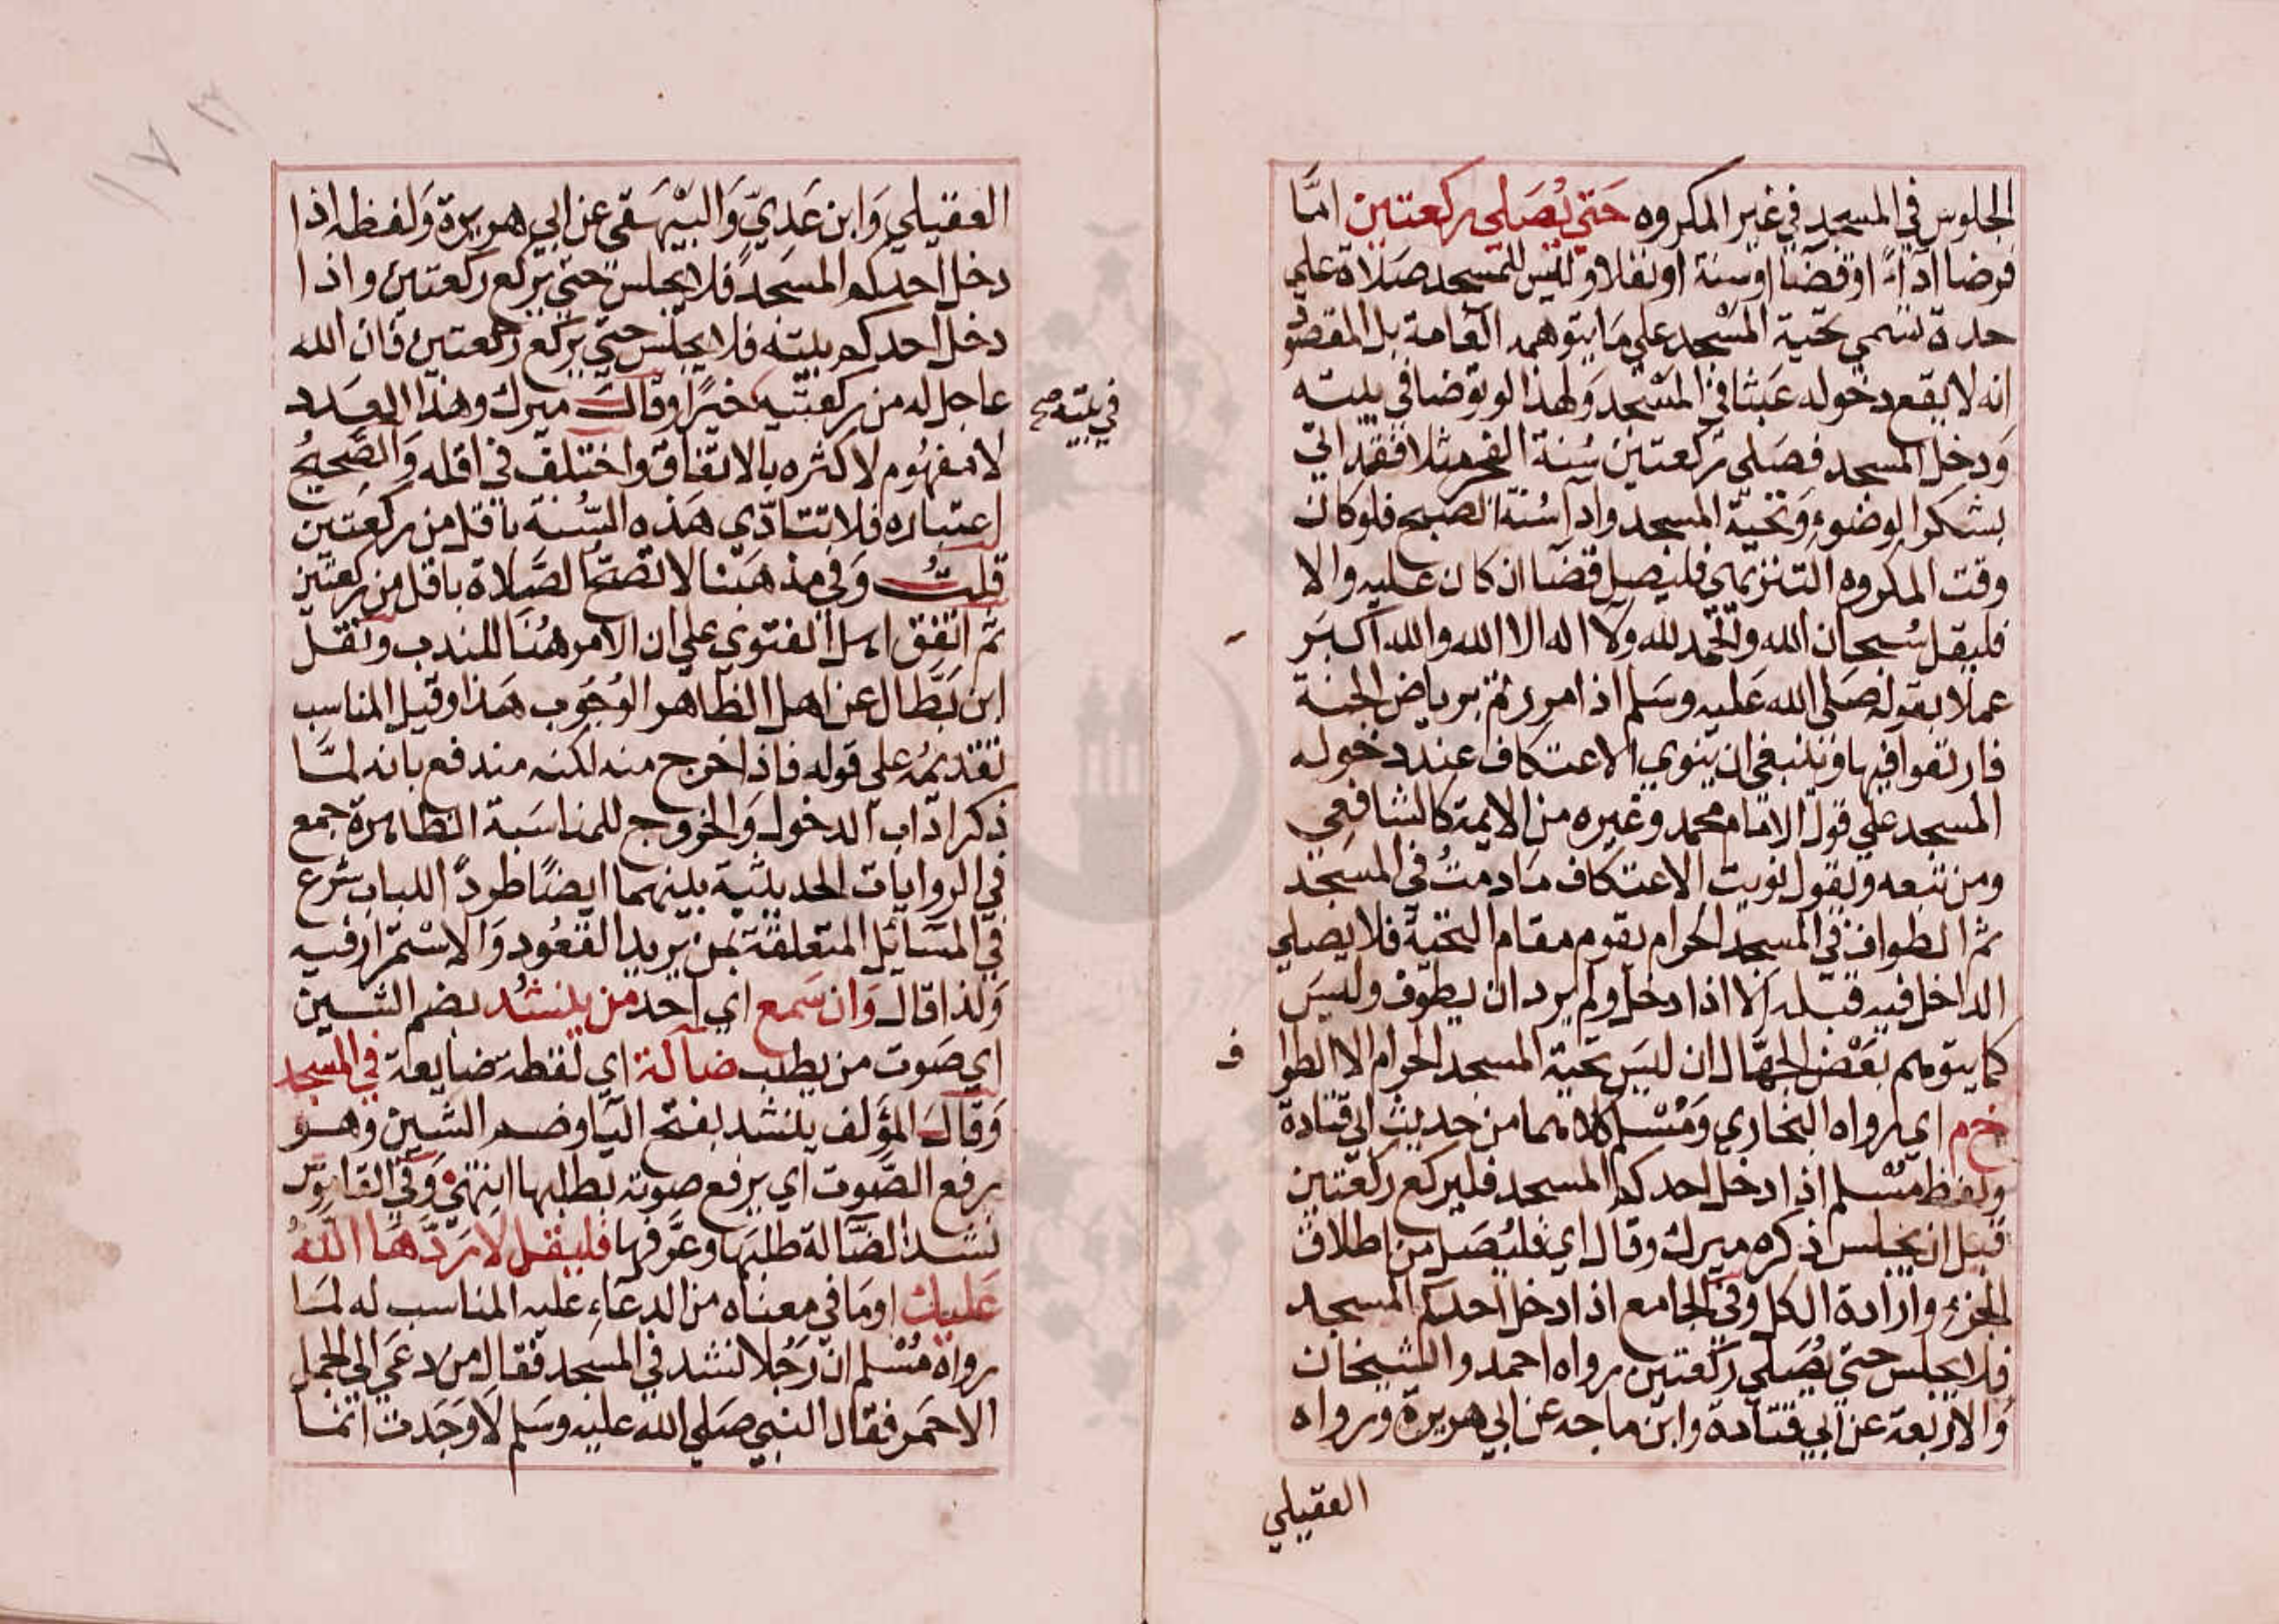 الجلوس في المسجد في غير المكروه حَتي يُصَلي ركعتين امَّا
فرضا ادآءً او قضآا اوسنة اونفلا وليس للمسجد صَلاة علي
حدة تسمي تحية المسْجد علي مَا يتوهمه العَامة بل المقصُود
انه لا يقع دخوله عَبثا في المسْجد وَلهذا لو توضا في بيته
وَدخل المسجد فصَلي ركعتين سُنة الفجر مثلا فقد اتي
بشكر الوضوءِ وَتحية المسجد وادآ سُنة الصبح فلو كان
وقت المكروه التنزيهي فليصل قضآا ان كان عليه والا
فليقل سُبحان الله والحمد لله ولآ اله الا الله والله اكبَر
عملا بقوله صَلي الله عَليه وسَلم اذا مررتم برياض الجنة
فارتعوا فيها وينبغي ان ينوي الاعتكاف عند دخوله
المسجد علي قول الامام محمد وغيره من الايمة كالشافعي
ومن تبعه ويقول نويت الاعتكاف مَا دمتُ في المسجد
ثم الطواف في المسجد الحرام يقوم مقام التحية فلا يصلي
الداخل فيه قبله الا اذا دخل ولم يرد ان يطوف وليسَ
كما يتوهم بعْض الجهّال ان ليسَ تحية المسجد الحرام الا الطوا ف
خ م اي رواه البخاري وَمُسْلم كلاهما من حديث ابي قتادة
ولفظ مسْلم اذا دخل احدكم المسجد فليركع ركعتين
قبل ان يجلس ذكره ميرك وقال اي فليُصَل من اطلاق
الجزءِ وارادة الكل وفي الجامع اذا دخل احدكم المسجد
فلا يجلس حتي يُصَلي ركعتين رواه احمد والشيخان
وَالاربعة عن ابي قتادة وابن ماجه عن ابي هريرة ورواه
العقيلي
العقيلي وَابن عَديّ وَالبَيْهَقي عن ابي هريرة وَلفظه اذا
دخل احدكم المسجد فلا يجلس حتي يركع ركعتين واذا
دخل احدكم بيته فلا يجلس حتي يركع ركعتين فان الله
عاجل له من ركعتيه خيرًا وقال ميرك وهذا العدد
في بيته صح
لا مفهُوم لاكثره بالاتفاق واختلف في اقله وَالصَّحيحُ
اعتباره فلا تتادّي هَذه السُّنة باقل من ركعَتين
قلتُ وَفي مذهَبنا لا تصحّ الصَّلاة باقل من ركعتين
ثم اتفق اهل الفتوي علي ان الامر هُنا للندب ونقل
ابن بَطّال عن اهل الظاهر الوُجُوب هَذا وقيل المناسب
تقديمُه علي قوله فاذا خرج منه لكنه مندفع بانه لمَّا
ذكر ادَاب الدخول وَالخروج للمناسَبة الظاهرة جمع
في الروايات الحديثية بينهما ايضًا طردً اللباب شرع
في المسَائل المتعلقة بمن يريد القعُود وَالاسْتمرار فيه
وَلذا قال وَان سَمع اي احد من ينشُد بضم الشين
اي صَوت من يطلب ضالة اي لقطة ضايعة في المسجد
وَقال المؤلف ينشد بفتح اليَا وضم الشين وهو
برفع الصّوت اي يرفع صوته بطلبها انتهيْ وَفي القاموس
نشد الضّالة طلبَها وعَرَّفها فليقل لا رَدَّهَا اللهُ
عَليك او مَا في معناه من الدعَاءِ عليه المناسب له لمَا
رواه مُسْلم ان رَجُلا نشد في المسجد فقال من دعَي الي الجمل
الاحمَر فقال النبي صَلي الله عليه وسَلم لا وَجَدت انما